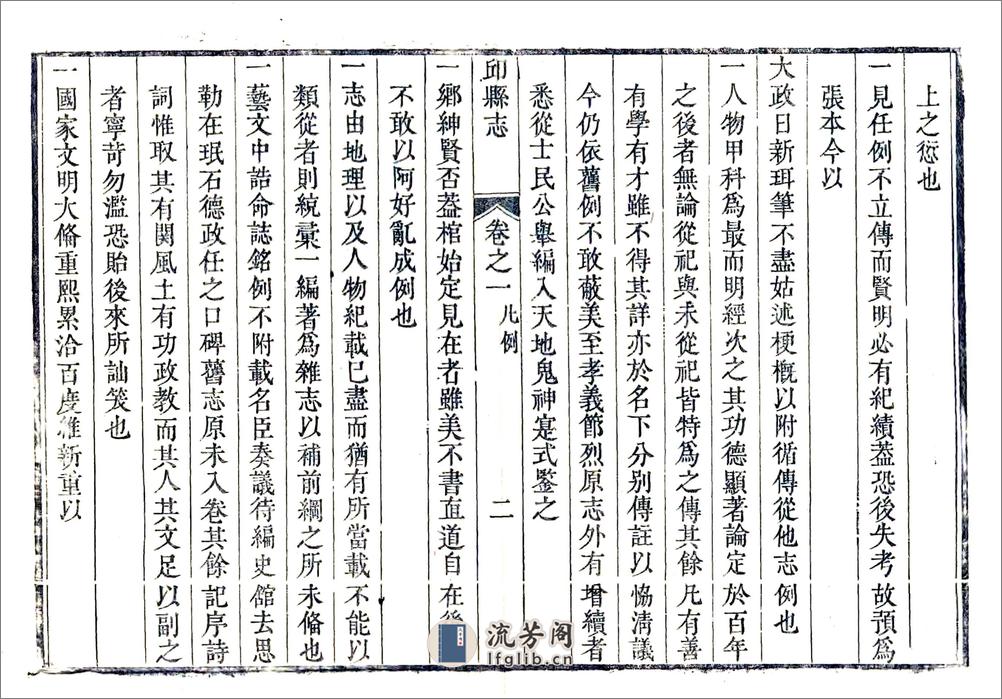 上之愆也
一見任例不立傳而賢明必有紀績蓋恐後失考故預爲
張本今以
大政日新珥筆不盡姑述梗槪以附循傳從他志例也
一人物甲科爲最而明經次之其功德顯著論定於百年
之後者無論從祀與未從祀皆特爲之傳其餘凡有善
有學有才雖不得其詳亦於名下分别傳註以恊淸議
今仍依舊例不敢蔽美至孝義節烈原志外有增續者
悉從士民公舉編入天地鬼神寔式鑒之
邱縣志
卷之一
凡例
二
一鄉紳賢否葢棺始定見在者雖美不書直道自在
不敢以阿好亂成例也
一志由地理以及人物紀載已盡而猶有所當載不能以
類從者則統彚一編著爲雜志以補前綱之所未偹也
一藝文中誥命誌銘例不附載名臣奏議待編史館去思
勒在珉石德政任之口碑舊志原未入卷其餘記序詩
詞惟取其有関風土有功政教而其人其文足以副之
者寧苛勿濫恐貽後來所訕笑也
一國家文明大偹重熙累洽百度維新重以
流芳阁
lfglib.cn